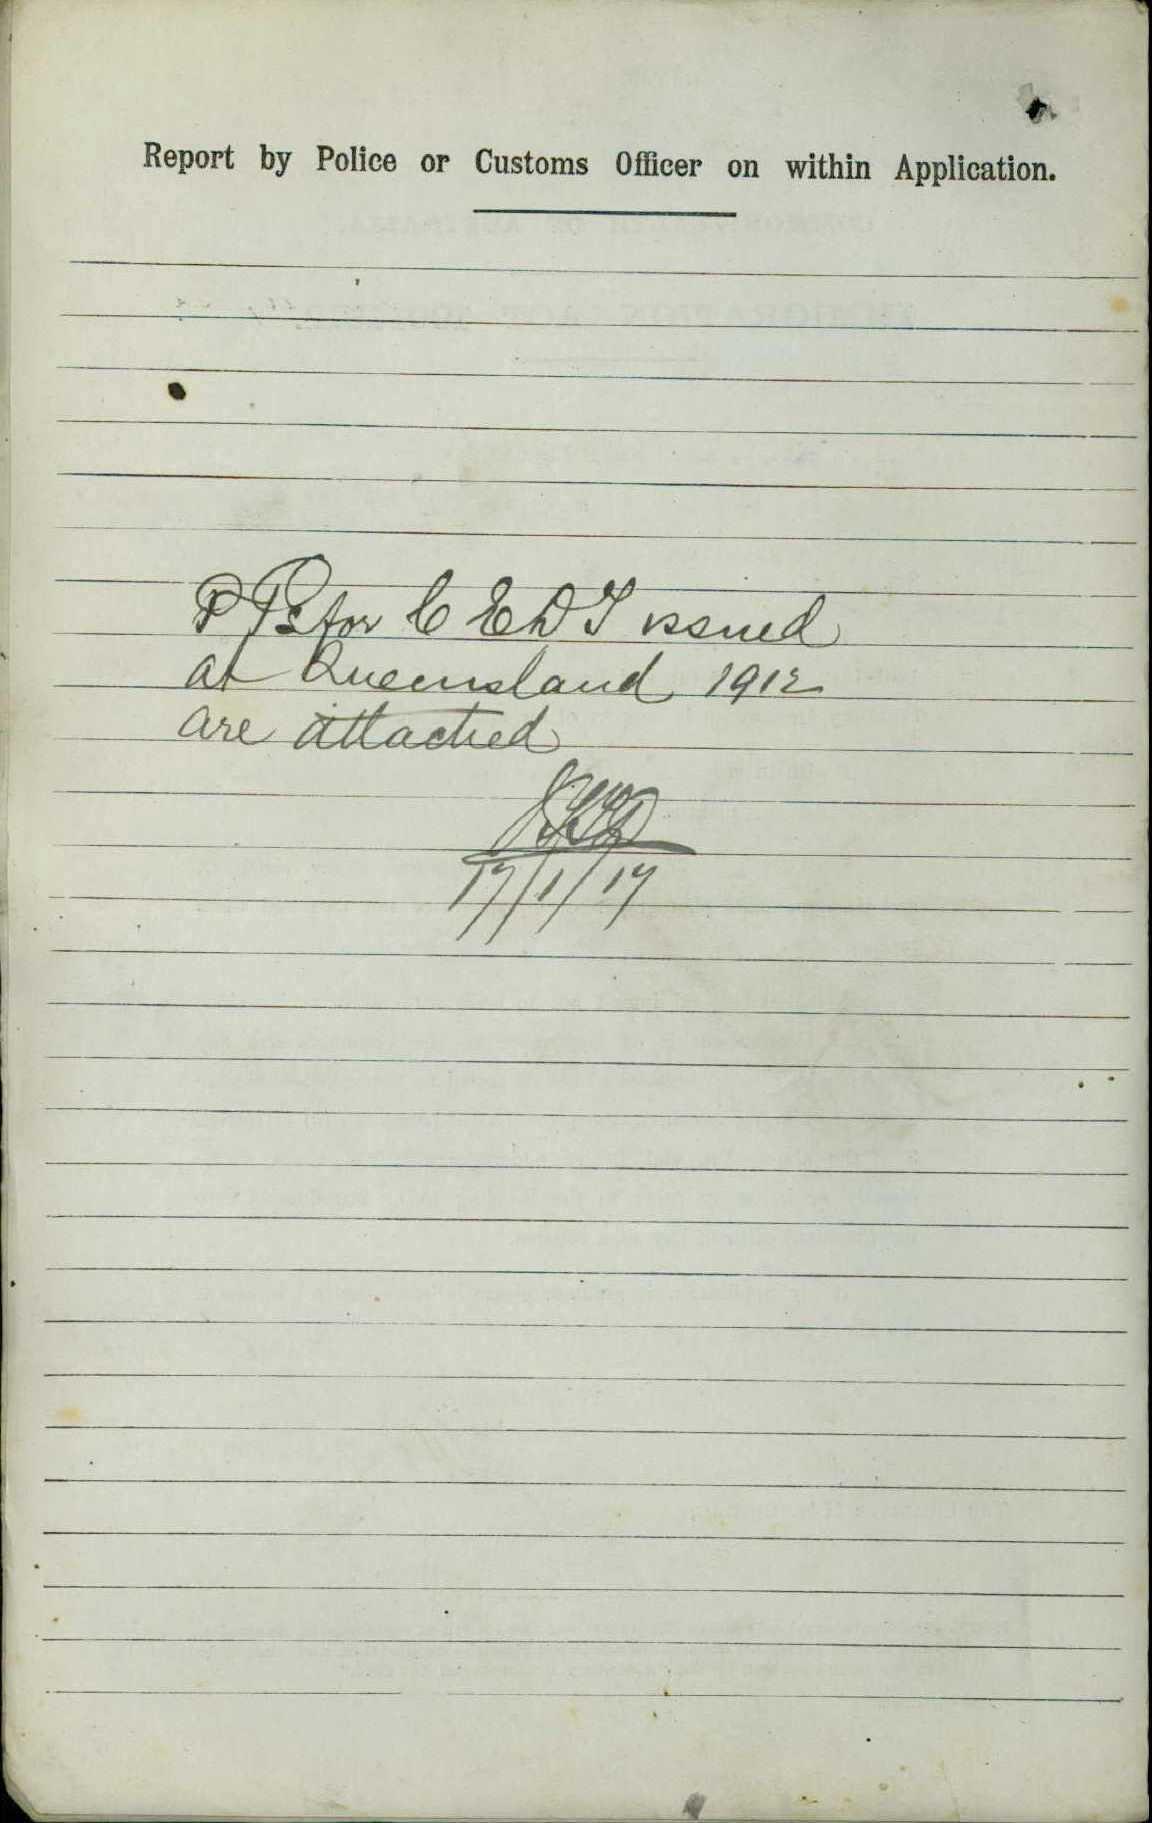 Report by Police or Customs Officer on within Application.
P Ps for C E D T issued
at Queensland 1912
are attached
17/1/17